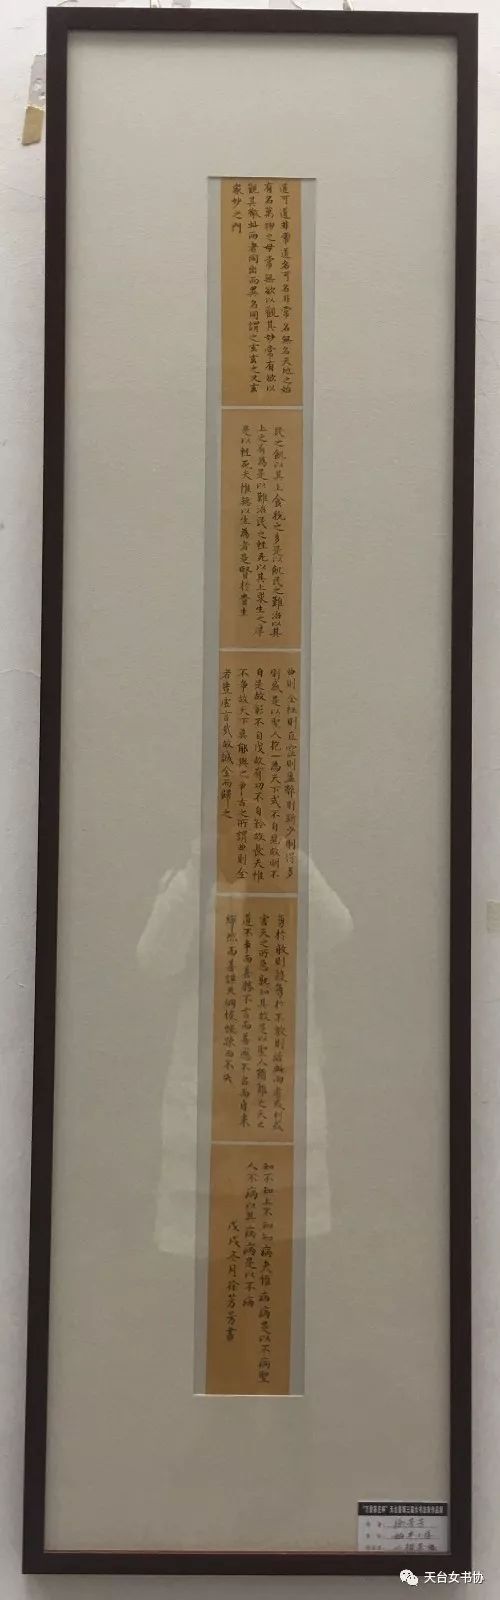 道可道非常道名可名非常名無名天地之始
有名萬物之母常無欲以觀其妙常有欲以
觀其徼此两者同出而異名同謂之玄玄之又玄
衆妙之門
民之飢以其上食稅之多是以飢民之難治以其
上之有為是以難治民之輕死以其上求生之厚
是以輕死夫惟無以生為者是賢於貴生
曲則全枉則直窪則盈弊則新少則得多
則惑是以聖人抱一為天下式不自見故明不
自是故彰不自伐故有功不自矜故長夫惟
不争故天下莫能與之争古之所謂曲則全
者豈虚言哉故誠全而歸之
勇於敢則殺勇於不敢則活此两者或利或
害天之所惡孰知其故是以聖人猶難之天之
道不争而善勝不言而善應不召而自来
繟然而善謀天網恢恢疎而不失
知不知上不知知病夫惟病病是以不病聖
人不病以其病病是以不病
戊戌冬月徐芳芳書
天台女书协